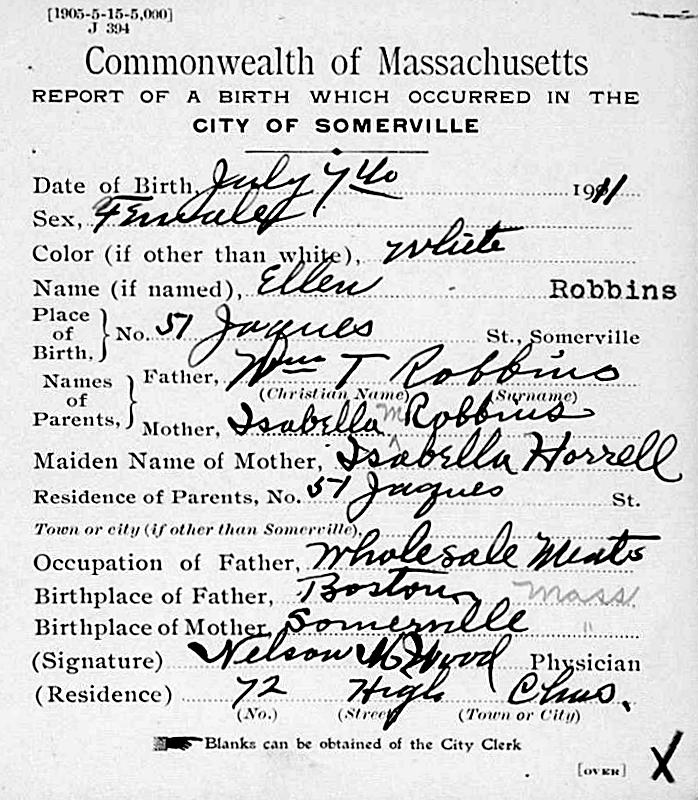 [1905-5-15-5,000]
J 394
Commonwealth of Massachusetts
REPORT OF A BIRTH WHICH OCCURRED IN THE
CITY OF SOMERVILLE
Date of Birth, July 7 1911
Sex, Female
Color (if other than white), White
Name (if named), Ellen Robbins
Place of Birth, } No. 51 Jaques St., Somerville
Names of Parents, } Father, Wm T Robbins
(Christian Name) (Surname)
Mother, Isabella M Robbins
Maiden Name of Mother, Isabella Horrell
Residence of Parents, No. 51 Jaques St.
Town or city (if other than Somerville),
Occupation of Father, Wholesale Meats
Birthplace of Father, Boston Mass.
Birthplace of Mother, Somerville "
(Signature) Nelson M Wood Physician
(Residence) 72 High Chas.
(No.) (Street) (Town or City)
Blanks can be obtained of the City Clerk
[OVER] X